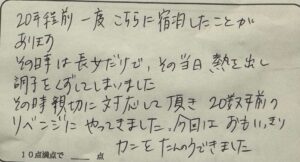 20年程前 一度 こちらに宿泊したことが
あります
その時は長女だけで、その当日 熱を出し
調子をくずしてしまいました
その時親切に対応して頂き 20数年前の
リベンジに やってきました。今回は おもいっきり
カニを たんのうできました
10点満点で 点